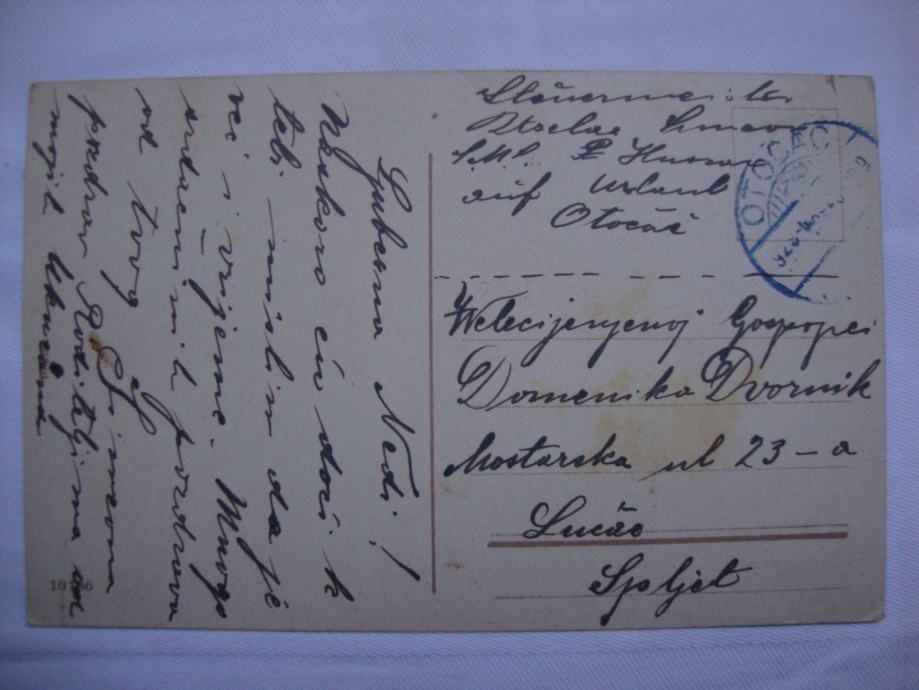 Ljubezna Nedi!
Naskoro ću doći k
tebi mislim da je
već i vrijeme. Mnogo
srdačnih pozdrava
od tvog Šimeona
pozdrav Roditeljima od
mojih
Steuermeister
S.M.S.
auf Urlaub
Otočač
OTOČAC
Welecijenjenoj Gospojici
Domenika Dvornik
Mostarska ul 23-a
Lučac
Spljet
10186